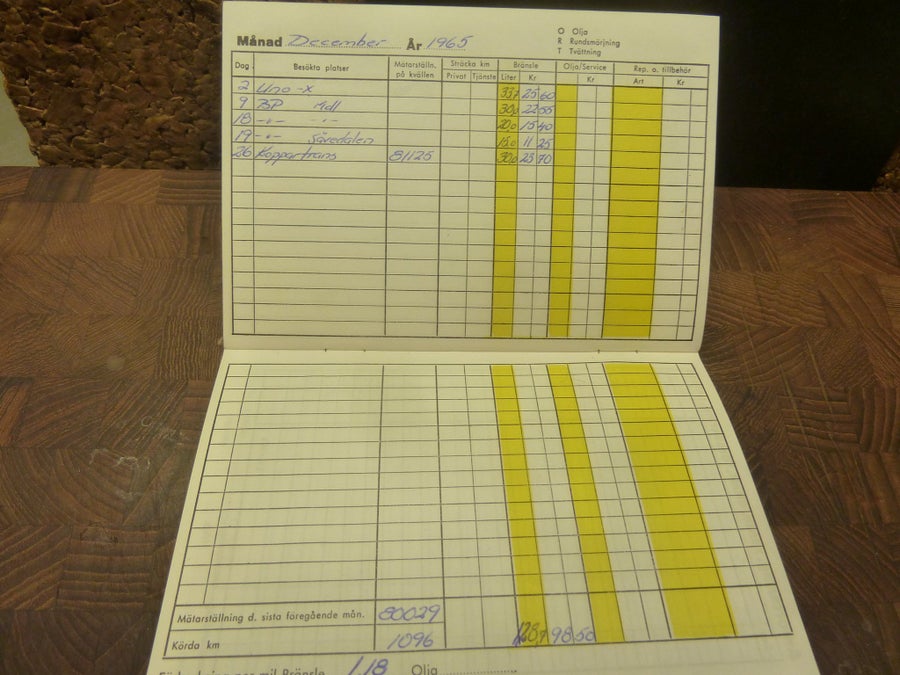 Månad December År 1965
O Olja
R Rundsmörjning
T Tvättning
Dag Besökta platser Mätarställn. på kvällen Sträcka km Bränsle Olja/Service Rep. o. tillbehör
Privat Tjänste Liter Kr Kr Art Kr
2 Uno-X 33,7 25 60
9 BP Mdl 30,0 22 55
18 -"- -"- 20,0 15 40
19 -"- Sävedalen 15,0 11 25
26 Koppartrans 81125 30,0 23 70
Mätarställning d. sista föregående mån. 80029
Körda km 1096 128,7 98 50
per mil Bränsle 1,18 Olja